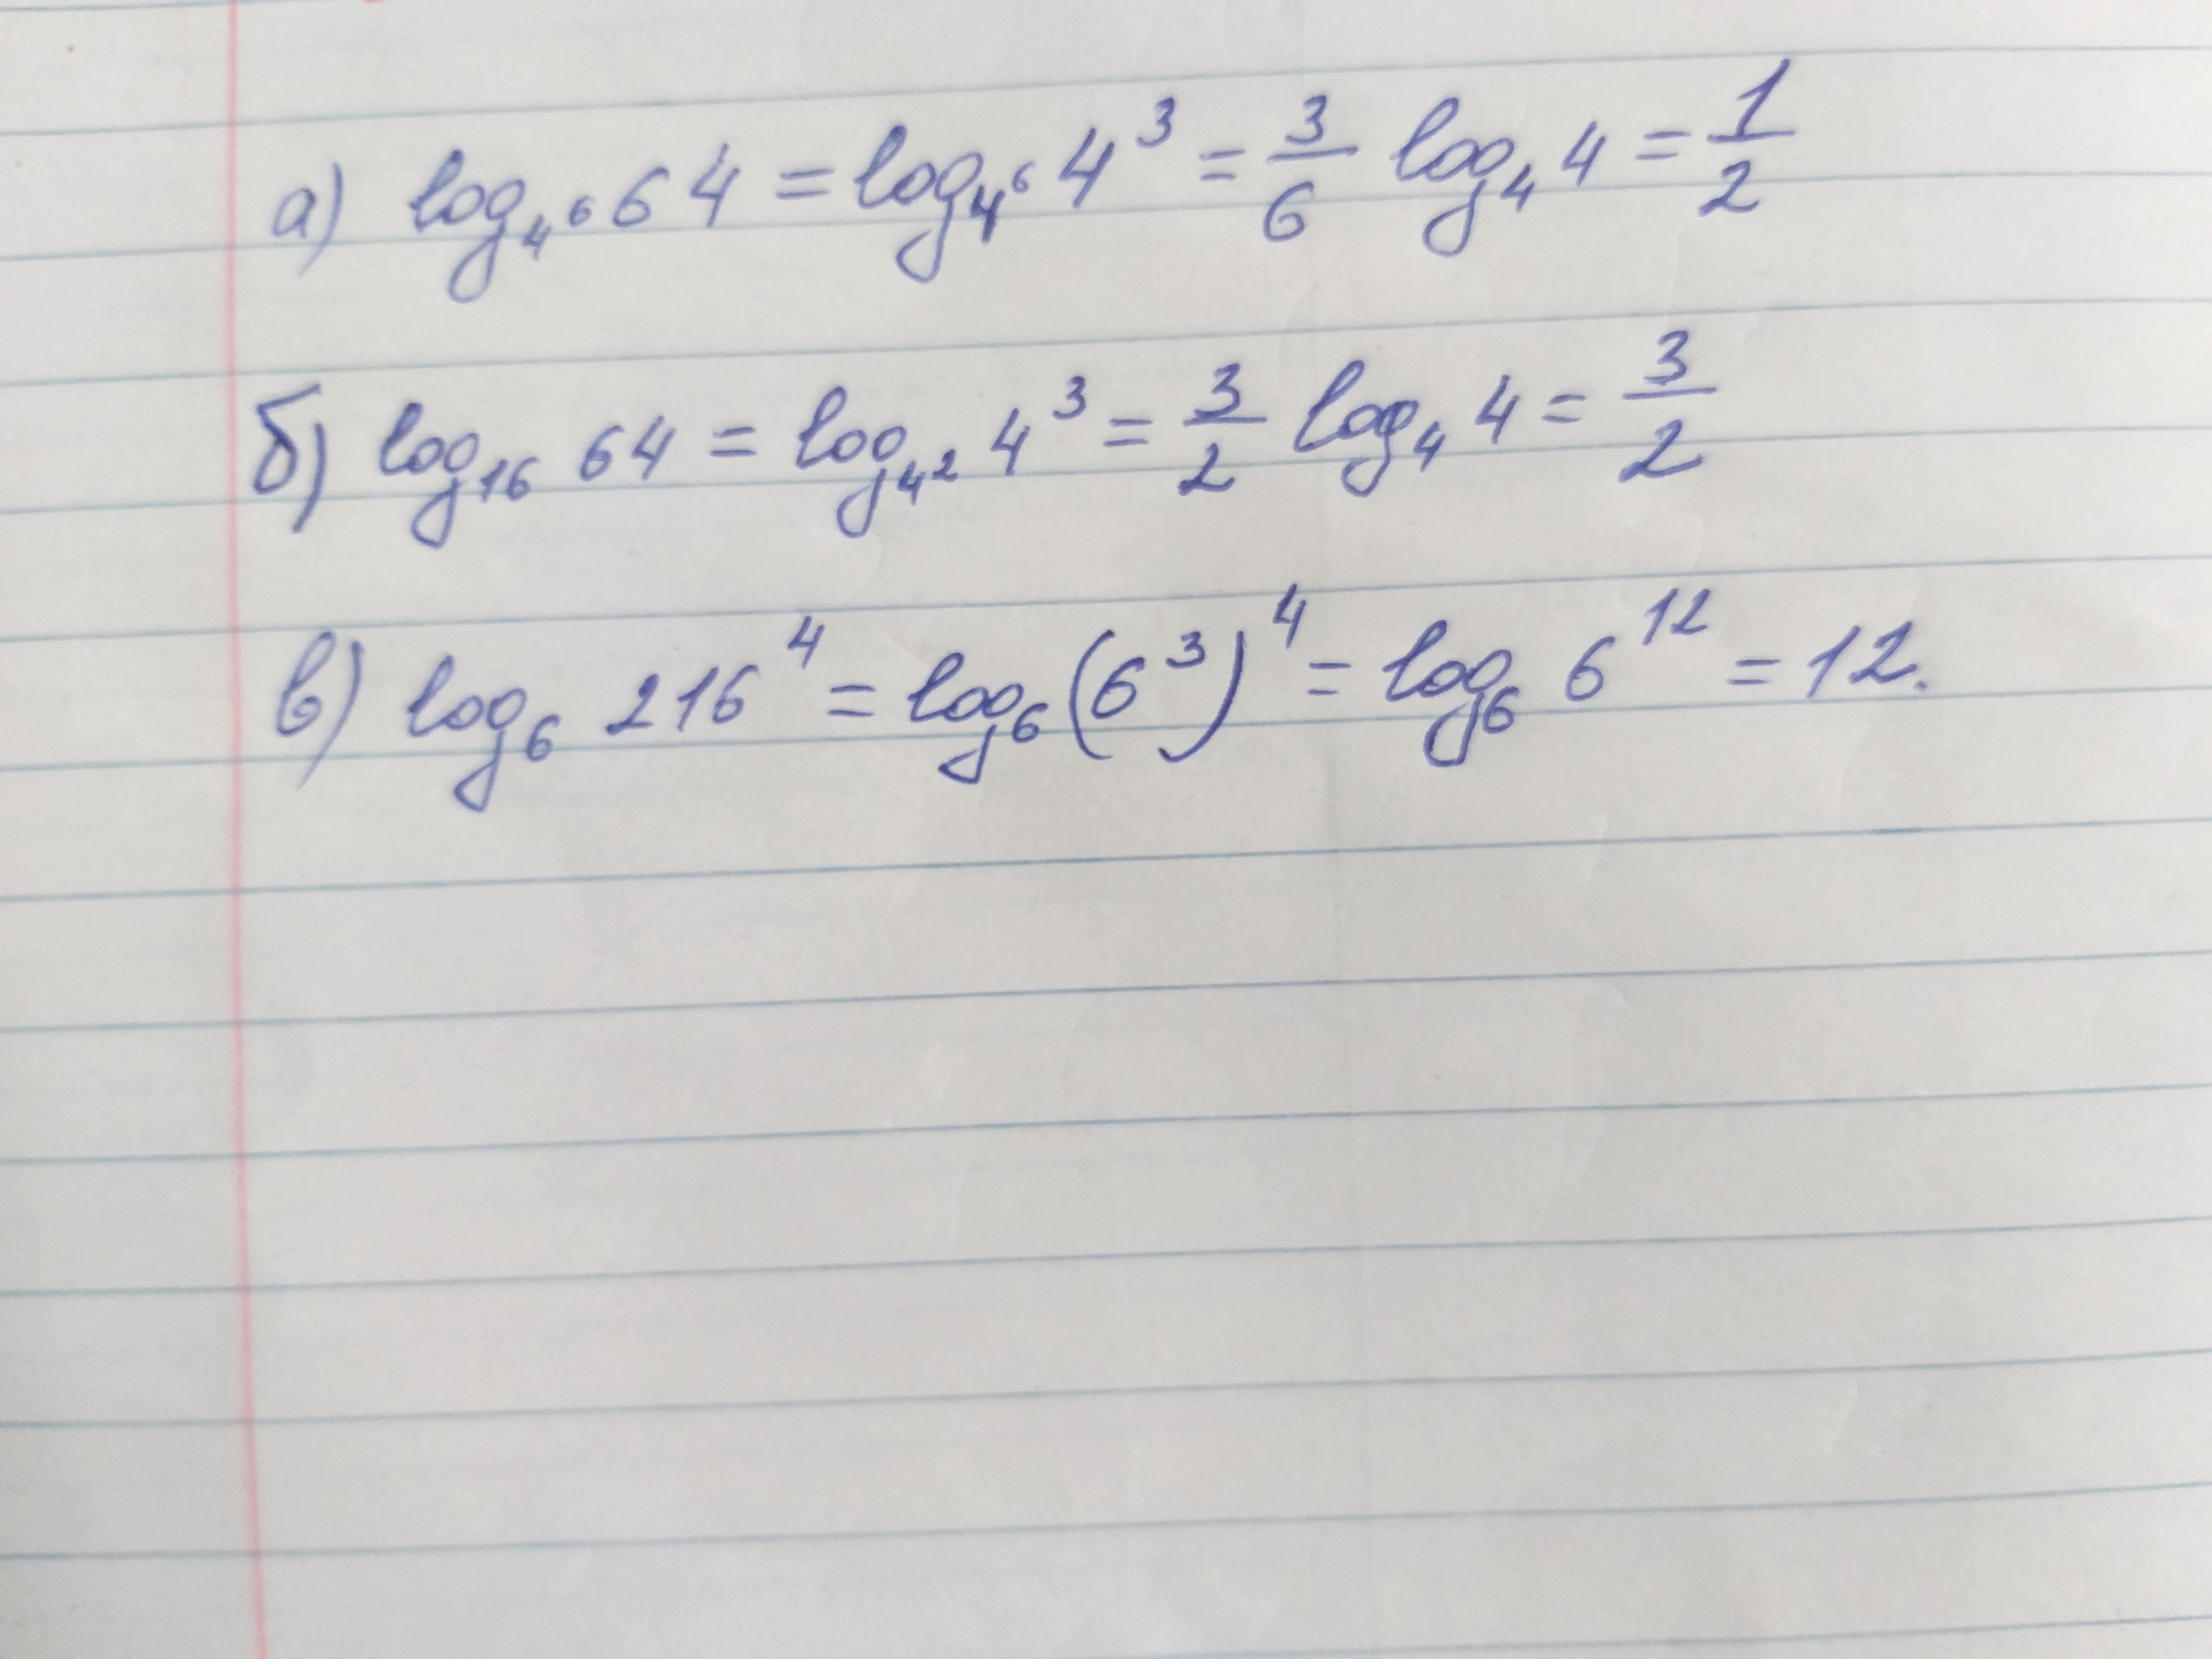 а) log₄⁶ 64 = log₄⁶ 4³ = 3/6 log₄ 4 = 1/2
б) log₁₆ 64 = log₄² 4³ = 3/2 log₄ 4 = 3/2
в) log₆ 216⁴ = log₆ (6³)⁴ = log₆ 6¹² = 12.